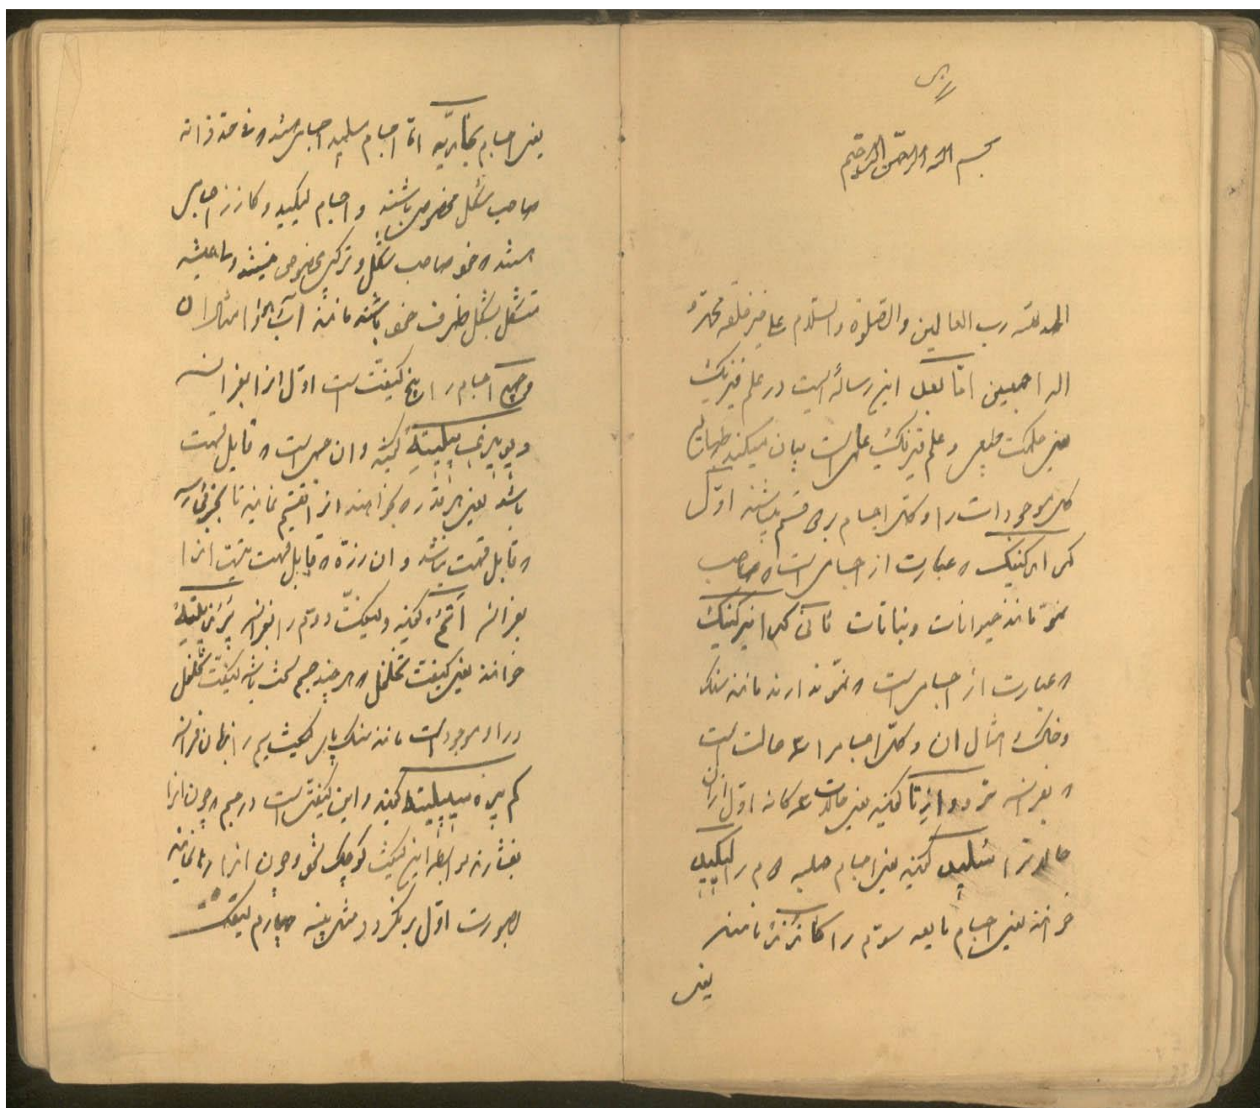 بسم الله الرحمن الرحیم
الحمد لله رب العالمین والصلوة والسلام علی خیر خلقه محمد و
اله اجمعین اما بعد این رساله ایست در علم فیزیک
یعنی حکمت طبیعی و علم فیزیک علمی است بیان میکند
کل موجودات را و کل اجسام بر دو قسم میباشند اول
کر ارکنیک و عبارت از اجسامی است که صاحب
نمو مانند حیوانات و نباتات ثانی کر انرکنیک
و عبارت از اجسامی است که نمو ندارند مانند سنک
و خاک و امثال ان و کل اجسام را سه حالت است
که بفرانسه کویند یعنی حالات سه کانه اول ازان
حالات را سلید کویند یعنی اجسام صلبه دوم را لیکید
خوانند یعنی اجسام مایعه سوم را کازز نامند
یعنی
یعنی اجسام بخاریه اما اجسام سلید اجسامی هستند که فی حد ذاته
صاحب شکل مخصوص باشند و اجسام لیکید و کازز اجسامی
هستند که خود صاحب شکل و ترکیب مخصوص نیستند و همیشه
متشکل بشکل ظرف خود باشند مانند اب و هوا و امثال ان
و جمیع اجسام را پنج کیفیت است اول انرا بفرانسه
دیویزیبیلیته کویند و ان جسمی است که قابل قسمت
باشد یعنی هر قدر که بخواهند انرا تقسیم نمایند تا بجزئی رسد
که قابل قسمت نباشد و ان ذره که قابل قسمت نیست انرا
بفرانسه اتم کویند و کیفیت دوم را بفرانسه پرزیته
خوانند یعنی کیفیت تخلخل که هر چند جسم سخت باشد کیفیت تخلخل
در او موجود است مانند سنک کیفیت سیم را بزبان فرانسه
کمپرسیبیلیته کویند و این کیفیتی است در جسم که چون انرا
بفشارند بواسطه این کیفیت کوچک شود و چون انرا رها نمایند
بصورت اول برکردد مثل پنبه چهارم کیفیت